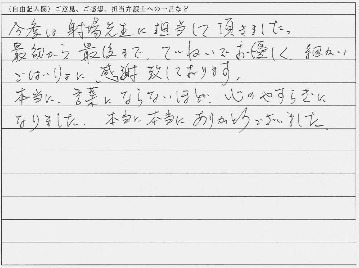 (自由記入欄) ご意見、ご感想、担当弁護士への一言など
今度は射場先生に担当して頂きました。
最初から最後まで、ていねいでお優しく、細かい
ごはいりょに感謝致しております。
本当に、言葉にならないほど、心のやすらぎに
なりました。本当に本当にありがとうございました。